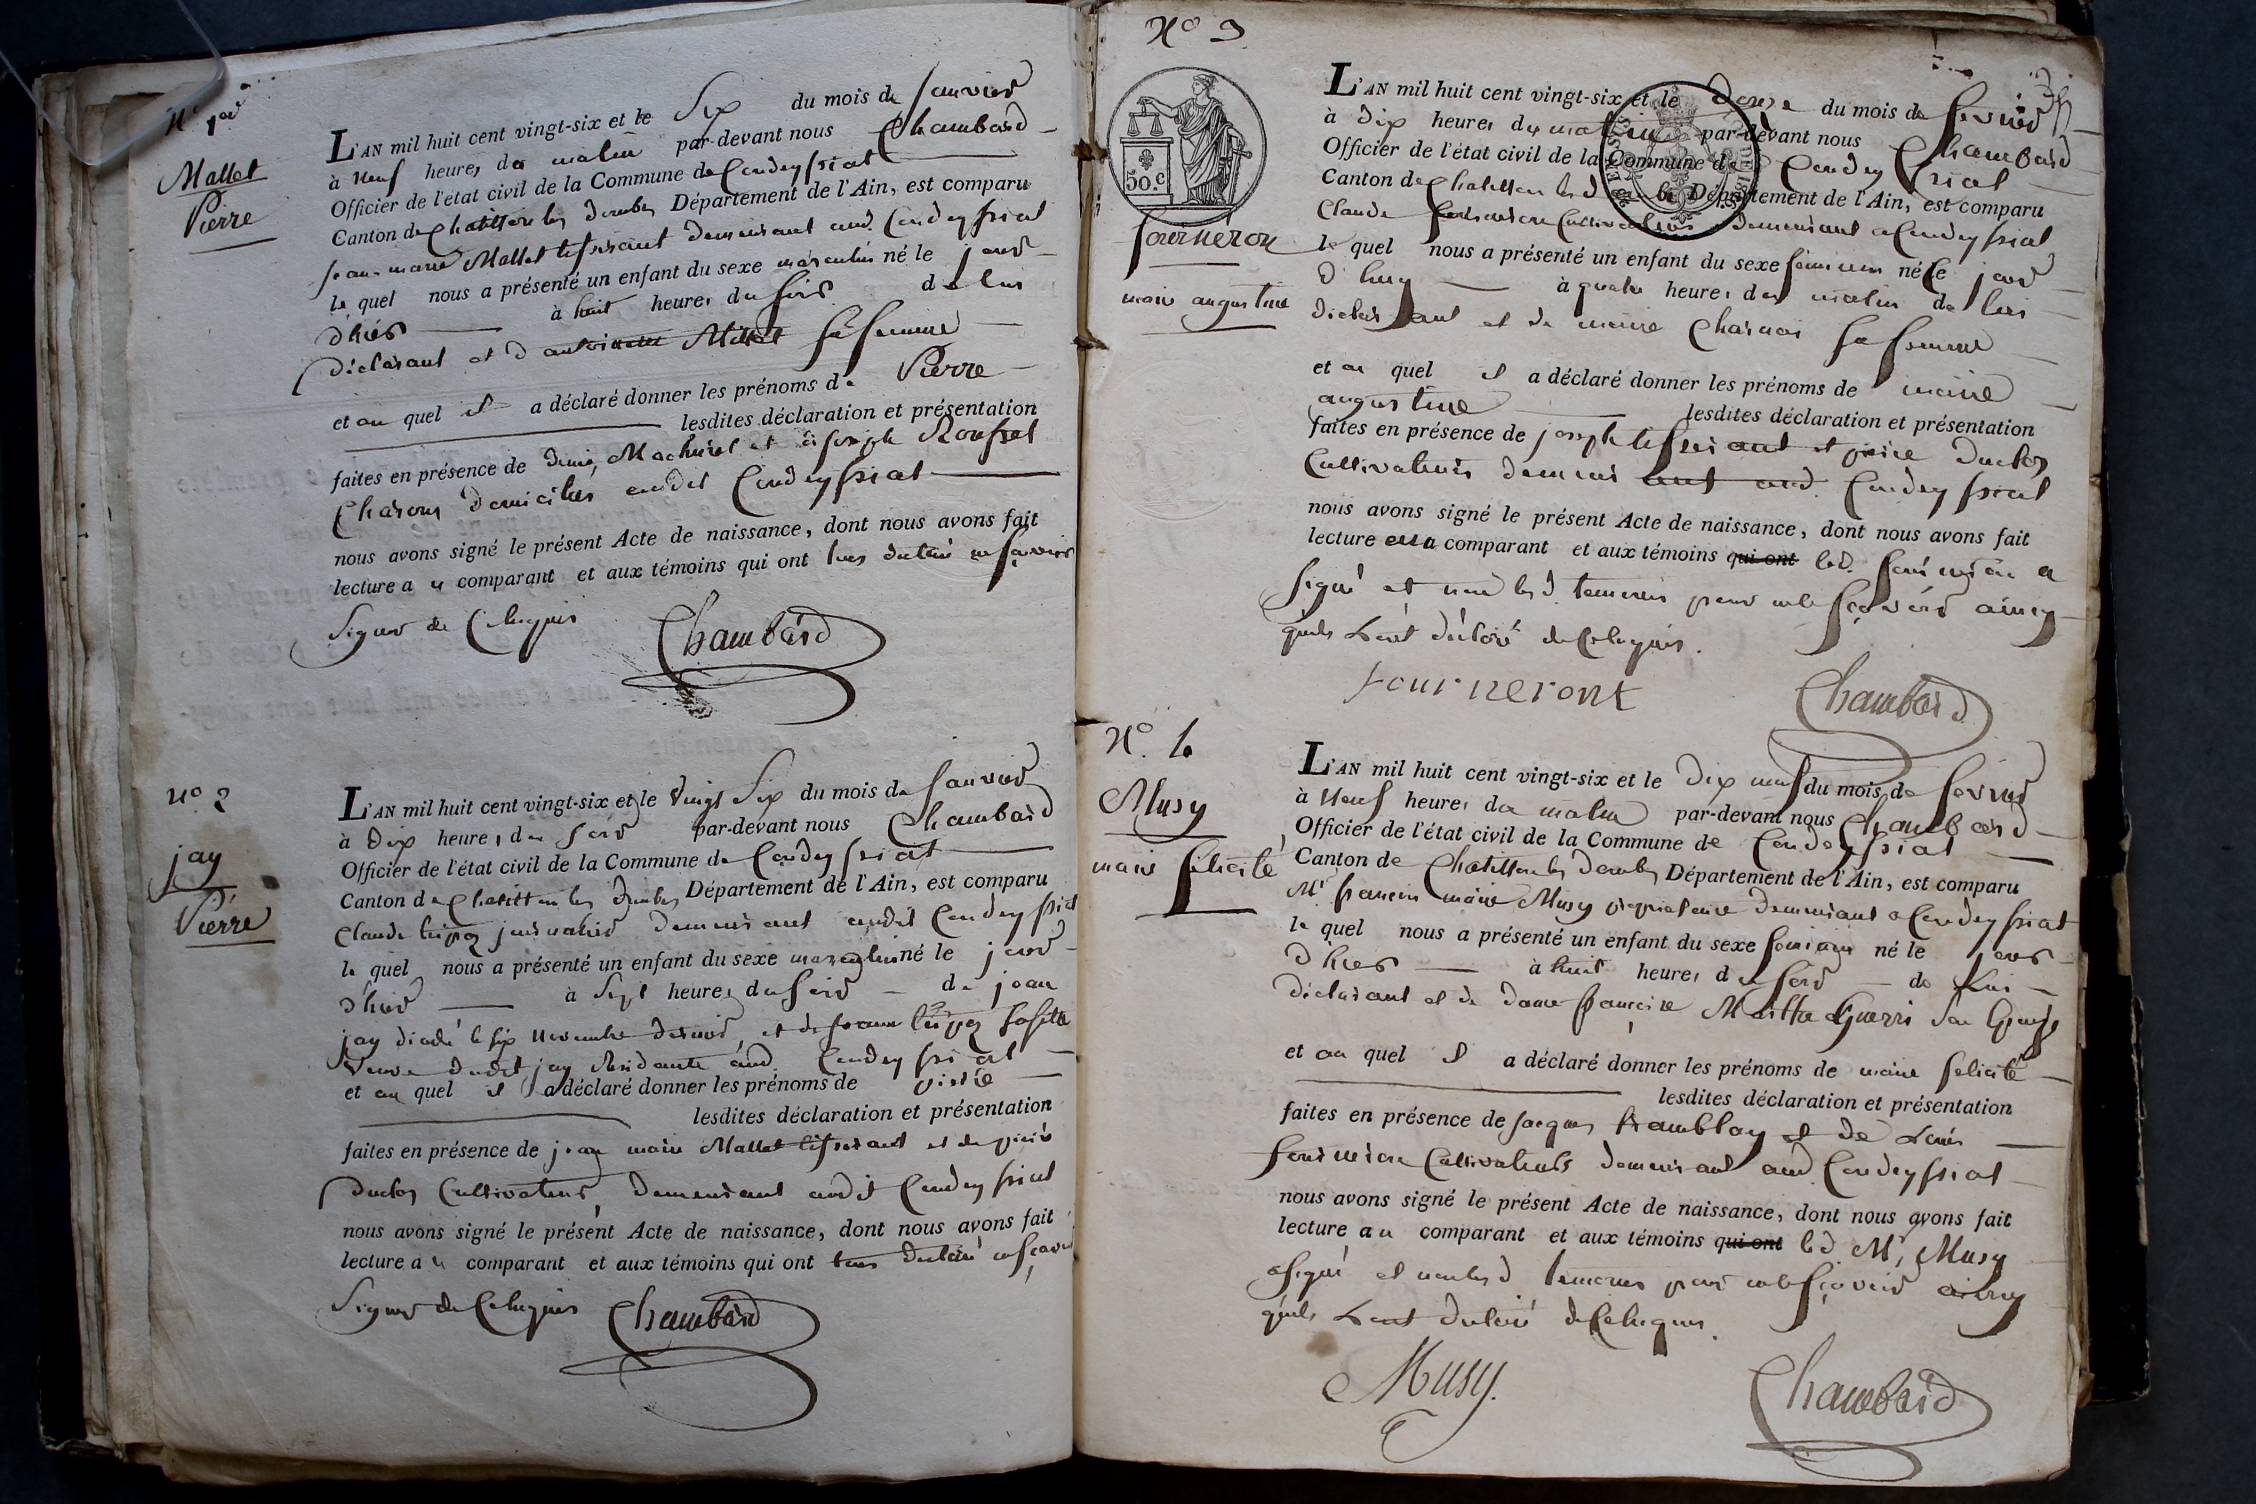 N° 1er
Mallet
Pierre
L'AN mil huit cent vingt-six et le Six du mois de janvier
à neuf heures du matin par-devant nous Chambard
Officier de l'état civil de la Commune de Condeyssiat
Canton de Chatillon les Dombes Département de l'Ain, est comparu
jean marie Mallet tisserant demeurant aud. Condeyssiat
le quel nous a présenté un enfant du sexe masculin né le jour
d'hier à huit heures du soir de lui
déclarant et d'antoinette Millet sa femme
et au quel il a déclaré donner les prénoms de Pierre
lesdites déclaration et présentation
faites en présence de Mathurel et joseph
charons domiciliés audit Condeyssiat
nous avons signé le présent Acte de naissance, dont nous avons fait
lecture au comparant et aux témoins qui ont tous déclaré ne sçavoir
signer de ce requis
Chambard
N° 2
jay
Pierre
L'AN mil huit cent vingt-six et le vingt Six du mois de janvier
à dix heures du soir par-devant nous Chambard
Officier de l'état civil de la Commune de Condeyssiat
Canton de Chatillon les Dombes Département de l'Ain, est comparu
Claude journalier demeurant audit Condeyssiat
le quel nous a présenté un enfant du sexe masculin né le jour
d'hier à Sept heures du soir de jean
jay décédé le six novembre dernier, et de sa fille
veuve dudit jay Residante aud. Condeyssiat
et au quel il a déclaré donner les prénoms de pierre
lesdites déclaration et présentation
faites en présence de jean marie Mallet tisserant et de pierre
Duclos Cultivateurs demeurant audit Condeyssiat
nous avons signé le présent Acte de naissance, dont nous avons fait
lecture au comparant et aux témoins qui ont tous déclaré ne sçavoir
signer de ce requis Chambard
N° 3
50.c
fourneron
marie augustine
L'AN mil huit cent vingt-six et le douze du mois de fevrier
à dix heures du matin par-devant nous Chambard
Officier de l'état civil de la Commune de Condeyssiat
Canton de Chatillon les d. Département de l'Ain, est comparu
Claude fourneron Cultivateur demeurant a Condeyssiat
le quel nous a présenté un enfant du sexe féminin né le jour
d'huy à quatre heures du matin de lui
déclarant et de marie Charnai sa femme
et au quel il a déclaré donner les prénoms de marie
augustine lesdites déclaration et présentation
faites en présence de joseph tisserant et pierre Duclos
Cultivateurs demeurant aud. Condeyssiat
nous avons signé le présent Acte de naissance, dont nous avons fait
lecture au comparant et aux témoins qui ont led. fourneron a
signé et non les d. temoins pour ne le sçavoir ainsy
quils l'ont déclaré de ce requis.
fourneront Chambard
N° 4
Musy
marie felicité
L'AN mil huit cent vingt-six et le dix neuf du mois de fevrier
à neuf heures du matin par-devant nous Chambard
Officier de l'état civil de la Commune de Condeyssiat
Canton de Chatillon les Dombes Département de l'Ain, est comparu
Mr. françois marie Musy propriétaire demeurant a Condeyssiat
le quel nous a présenté un enfant du sexe féminin né le jour
d'hier à huit heures du soir de lui
déclarant et de dame françoise Martha Guerri Son Epouse
et au quel il a déclaré donner les prénoms de marie felicité
lesdites déclaration et présentation
faites en présence de Jacques tramblay et de Louis
fourneron Cultivateurs demeurant aud. Condeyssiat
nous avons signé le présent Acte de naissance, dont nous avons fait
lecture au comparant et aux témoins qui ont led. Mr. Musy
a signé et non les d. temoins pour ne le sçavoir ainsy
quils l'ont déclaré de ce requis.
Musy. Chambard